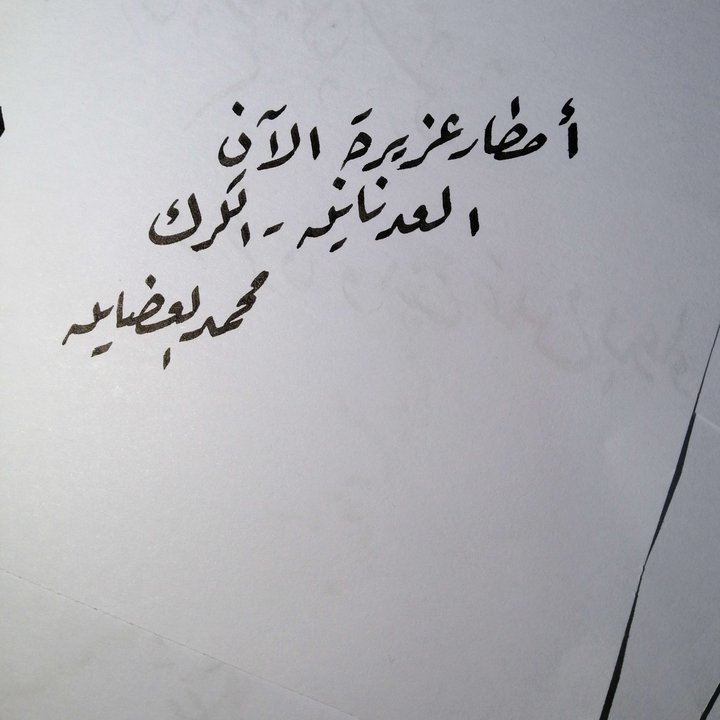 أمطار غزيرة الآن
العدنانيه - الكرك
محمد العضايله